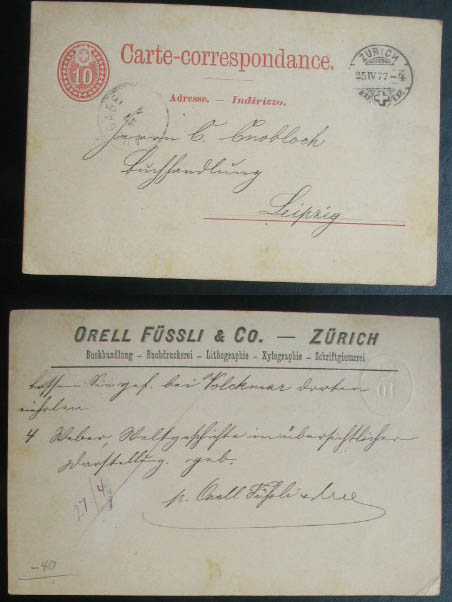 10
Carte-correspondance.
ZÜRICH
25 IV 77 - 4
BRF. EXP.
Adresse. — Indirizzo.
Herrn C. Cnobloch
Buchhandlung
Leipzig
ORELL FÜSSLI & CO. — ZÜRICH
Buchhandlung - Buchdruckerei - Lithographie - Xylographie - Schriftgiesserei
Lassen Sie gef. bei Volckmar dorten
einholen
4 Weber, Weltgeschichte in übersichtlicher
Darstellung. geb.
p. Orell Füssli & Co
27/4
-40